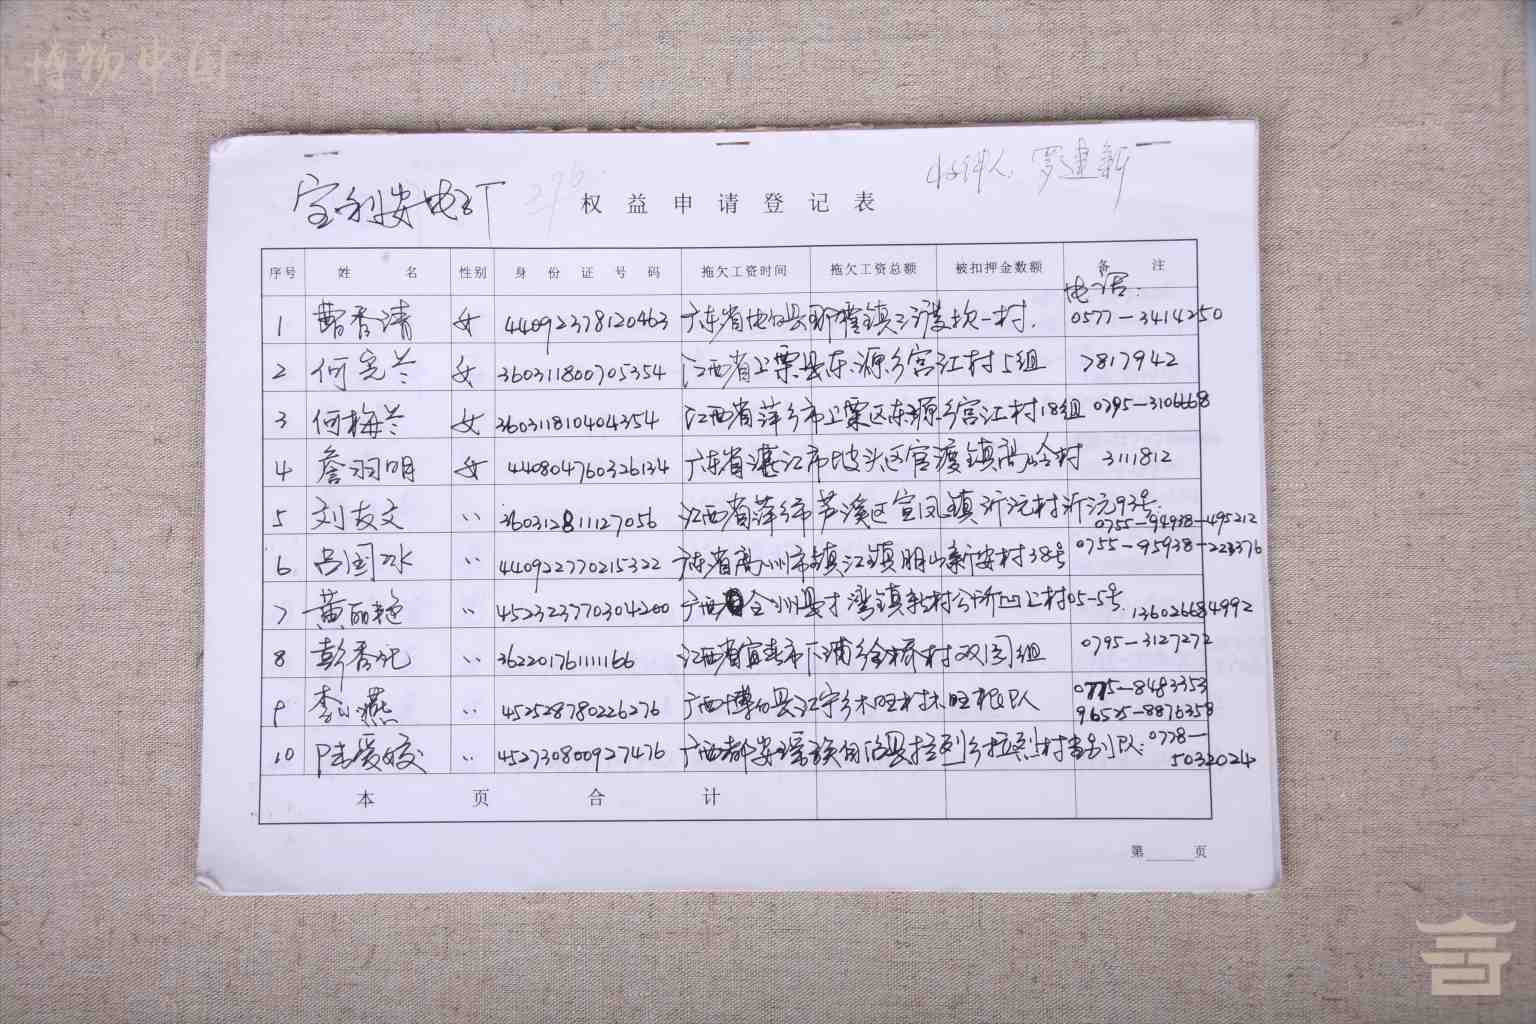 博物中国
宝利安电子厂 权益申请登记表 收件人: 罗建新
序号 姓名 性别 身份证号码 拖欠工资时间 拖欠工资总额 被扣押金数额 备注
电话:
1 女 44092378120463 广东省电白县那霍镇 一村. 0577-3414250
2 何 兰 女 360311800705354 江西省上栗县东源乡宫江村5组 7817942
3 何梅兰 女 360311810404354 江西省萍乡市上栗区东源乡宫江村18组 0795-3106668
4 詹羽明 女 440804760326134 广东省湛江市坡头区官渡镇高岭村 3111812
5 刘友文 〃 360312811127056 江西省萍乡市芦溪区宣风镇沂沅村沂沅93号. 0755-94938-495212
6 吕国水 〃 440922770215322 广东省高州市镇江镇朋山新安村38号 0755-95938-223376
7 黄丽艳 〃 452323770304200 广西 全州县才湾镇 村公所凹上村05-5号. 136026684992
8 彭香 〃 362201761111166 江西省宜春市下浦乡金桥村双园组 0795-3127272
9 李小燕 〃 452528780226276 广西博白县江宁乡木旺村木旺根队 0775-8483353
96525-8876358
10 陆爱姣 〃 452730800927476 广西都安瑶族自治县拉烈乡拉烈村 队: 0778-
5032024
本页合计
第 页